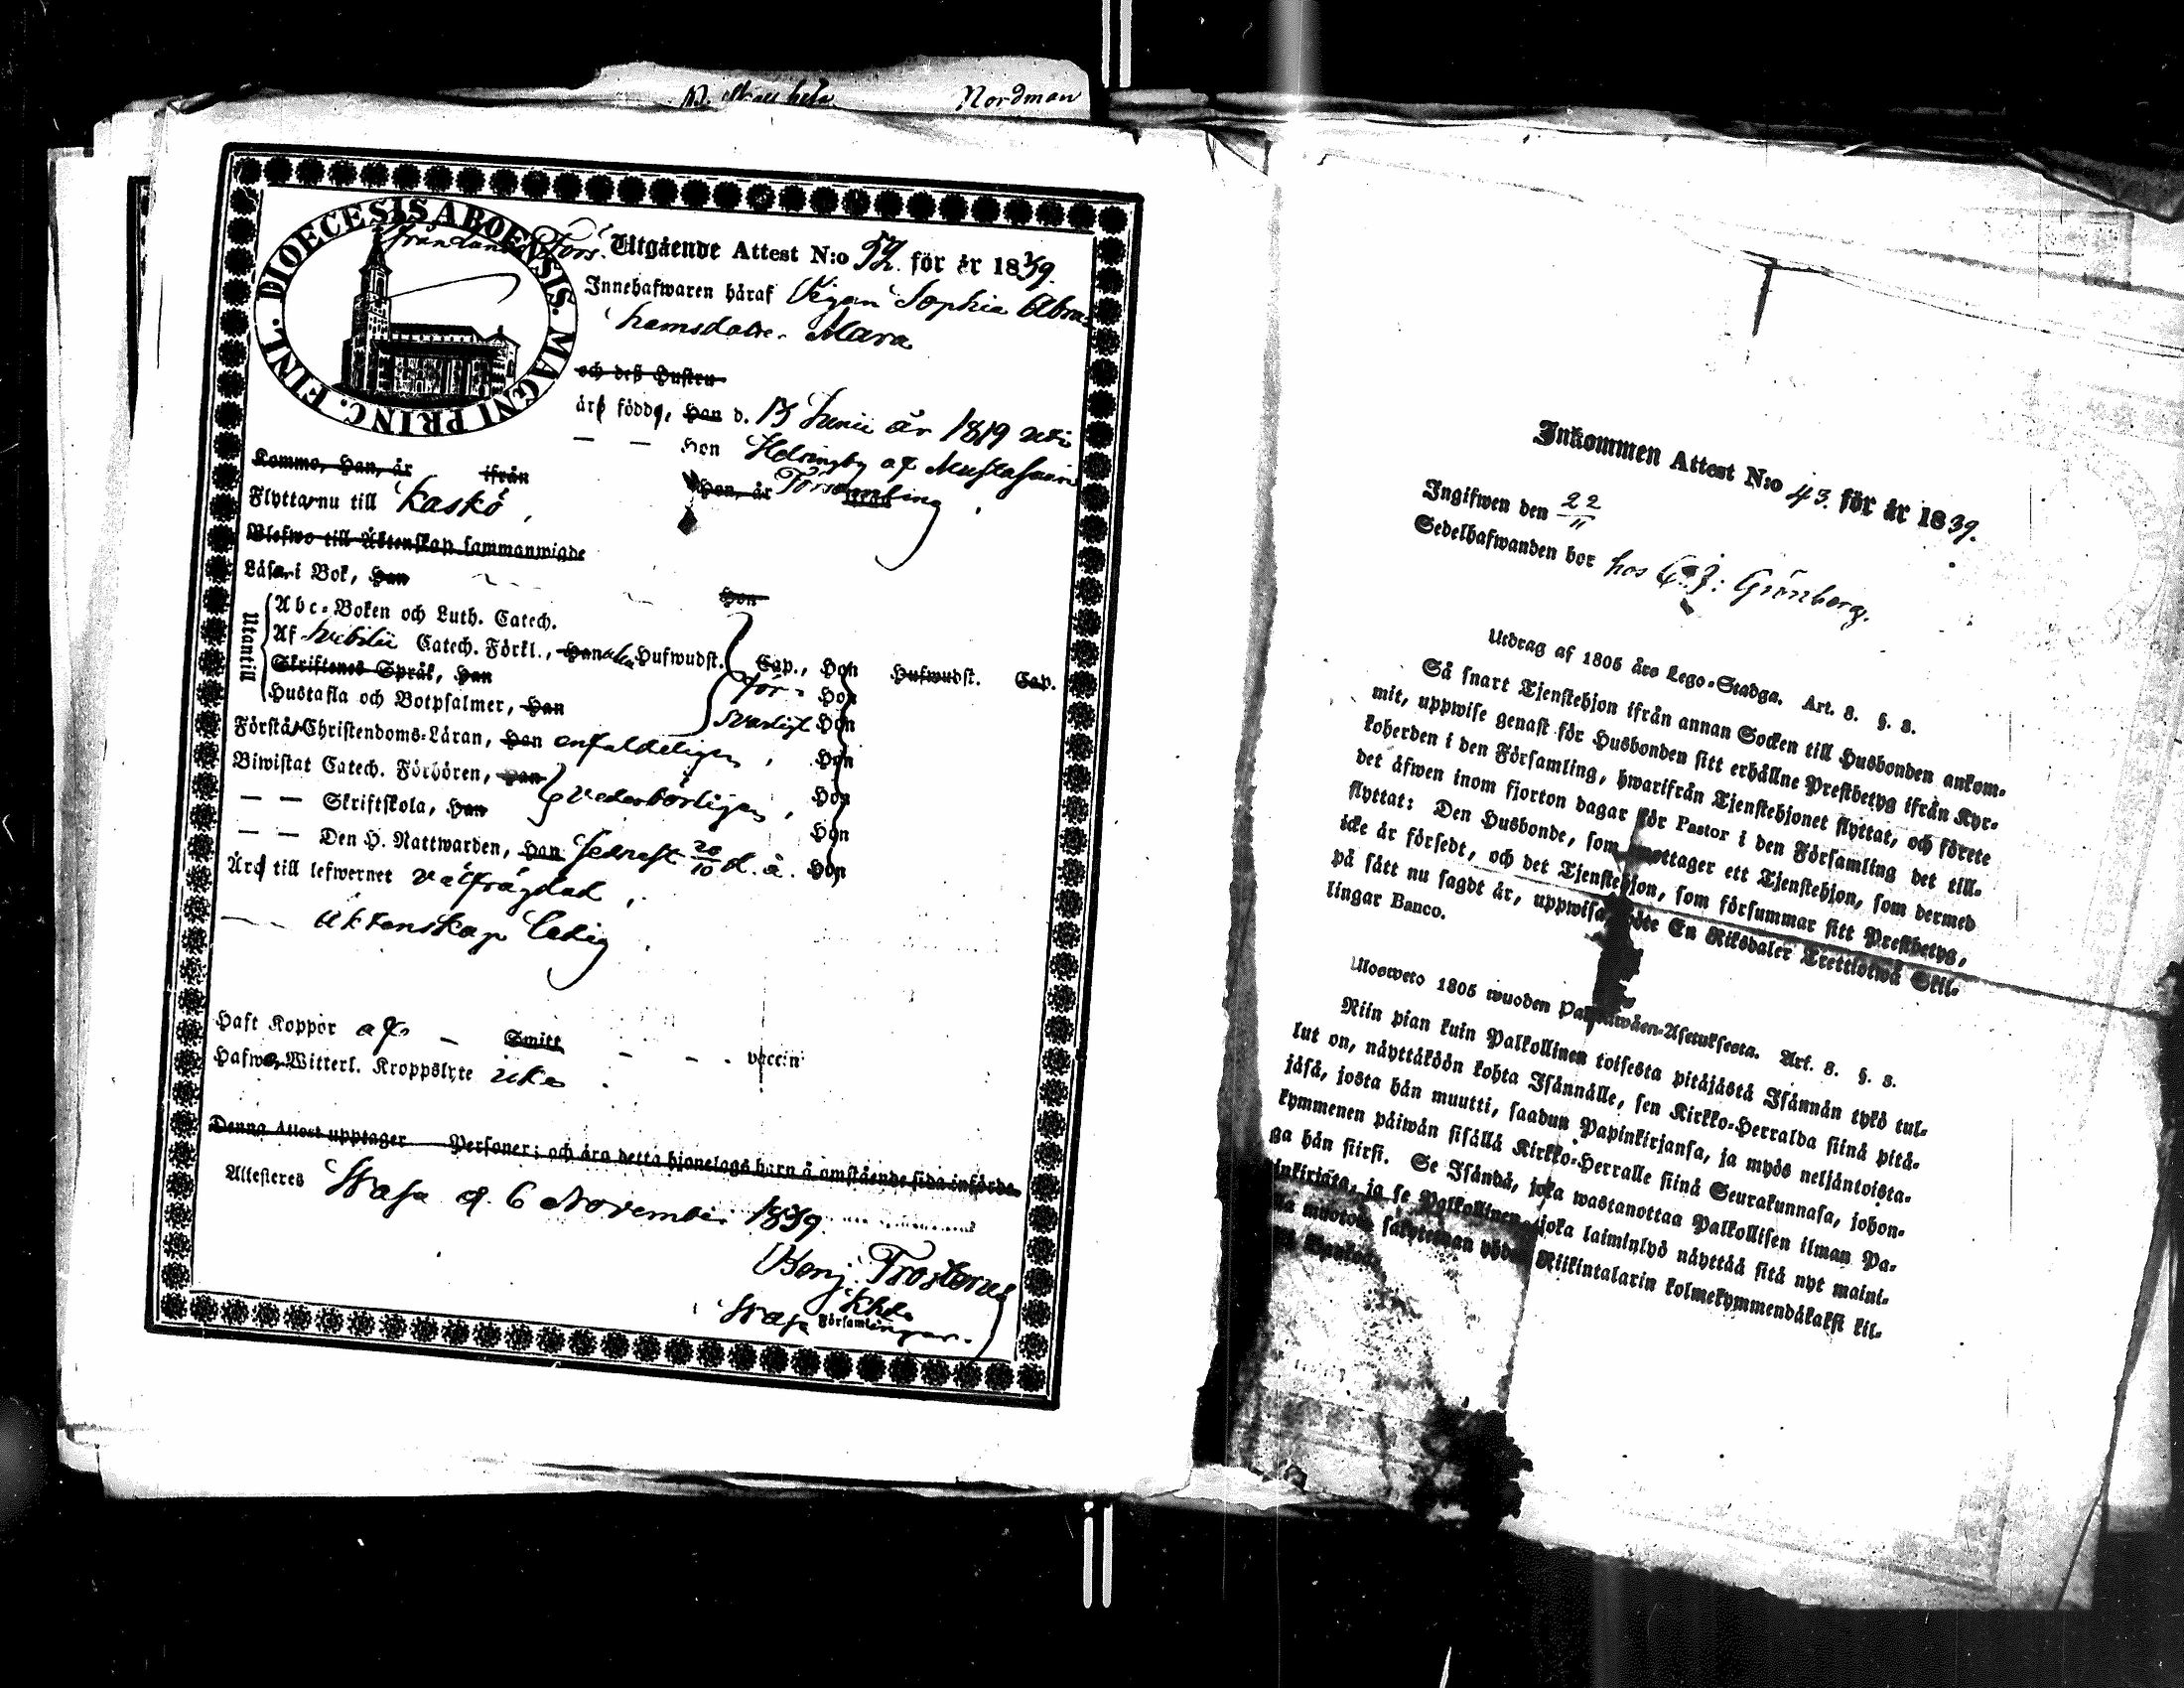 Nordman
DIOECESIS ABOENSIS. MAGNI PRINC. FINL.
från Lands Förs. Utgående Attest N:o 52. för år 1839.
Innehafwaren häraf Pigan Sophia Abra-
hamsdotter Mara
och deß Hustru
äro född, Han d. 13 Junii år 1819 uti
— — Hon Helsingby af Mustasaari
Församling.
Komme, Han, år ifrån Hon, år ifrån
Flyttar nu till Kaskö,
Blefwo till Äktenskap sammanwigde
Läser i Bok, Han Hon
Utantill
Abc-Boken och Luth. Catech.
Af Svebilii Catech. Förkl., Han alla Hufwudst. Cap., Hon Hufwudst. Cap.
Skriftenes Språk, Han för- Hon
Hustafla och Botpsalmer, Han svarligt Hon
Förstår Christendoms-Läran, Han enfaldeligen, Hon
Biwistat Catech. Förhören, Han vederbörligen, Hon
— — Skriftskola, Han Hon
— — Den H. Nattwarden, Han sednast 20/10 d. å. Hon
Är till lefwernet välfrägdad,
— Äktenskap ledig.
Haft Koppor af — Smitt — - - vaccin
Hafwer Witterl. Kroppslyte icke.
Denna Attest upptager Personer; och äro detta hjonelags barn å omstående sida införde.
Attesteres Wasa d. 6 November 1839.
Benj. Frosterus
Khde
Wasa Församlingar.
Inkommen Attest N:o 43. för år 1839.
Ingifwen den 22/11
Sedelhafwanden bor hos C. J: Grönberg.
Utdrag af 1805 års Lego-Stadga. Art. 3. §. 3.
Så snart Tjenstehjon ifrån annan Socken till Husbonden ankom-
mit, uppwise genast för Husbonden sitt erhållne Prestbetyg ifrån Kyr-
koherden i den Församling, hwarifrån Tjenstehjonet flyttat, och förete
det äfwen inom fjorton dagar för Pastor i den Församling det till-
flyttat: Den Husbonde, som emottager ett Tjenstehjon, som dermed
icke är försedt, och det Tjenstehjon, som försummar sitt Prestbetyg,
på sätt nu sagdt är, uppwisa, böte En Riksdaler Trettiotwå Skil-
lingar Banco.
Ulosweto 1805 wuoden Palkkawäen-Asetuksesta. Art. 3. §. 3.
Niin pian kuin Palkollinen toisesta pitäjästä Isännän tykö tul-
lut on, näyttäköön kohta Isännälle, sen Kirkko-Herralda siinä pitä-
jäsä, josta hän muutti, saadun Papinkirjansa, ja myös neljäntoista-
kymmenen päiwän sisällä Kirkko-Herralle siinä Seurakunnasa, johon-
ga hän siirsi. Se Isändä, joka wastanottaa Palkollisen ilman Pa-
inkirjata, ja se Palkollinen, joka laiminlyö näyttää sitä nyt maini-
Riikintalarin kolmekymmendäkaksi kil-